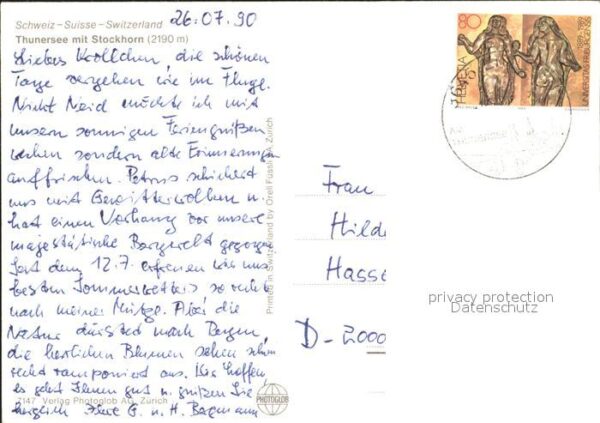 26.07.90
Schweiz - Suisse - Switzerland
Thunersee mit Stockhorn (2190 m)
Liebes Kröllchen, die schönen
Tage vergehen wie im Fluge.
Nicht Neid möchte ich mit
unsern sonnigen Feriengrüßen
wecken sondern alte Erinnerungen
auffrischen. Petrus schickerd
uns mit Gewitterwolken u.
hat einen Vorhang vor unsere
majestätische Bergwelt gezogen
Seit dem 12.7. erfreuen wir uns
besten Sommerwetters so recht
nach meiner Mütze. Aber die
Natur dürsted nach Regen,
die herrlichen Blumen sehen schon
recht ramponiert aus. Wir hoffen
es geht Ihnen gut u. grüßen Sie
herzlich Ihre G. u. H. Bagmann
2147 Verlag Photoglob AG, Zürich
PHOTOGLOB
Printed in Switzerland by Orell Füssli AG, Zürich
80
HELVETIA
Frau
Hilde
Hasse
D - 2000
privacy protection
Datenschutz